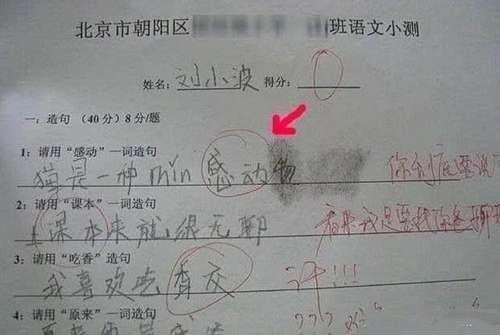 北京市朝阳区 班语文小测
姓名: 刘小波 得分: 0
一: 造句 (40分) 8分/题
1: 请用“感动”一词造句
猫是一种min感动物 你到底
2: 请用“课本”一词造句
上课本来就很无聊 看来我是要找你爸聊聊
3: 请用“吃香”一词造句
我喜欢吃香蕉 汗!!!
4: 请用“原来”一词造句